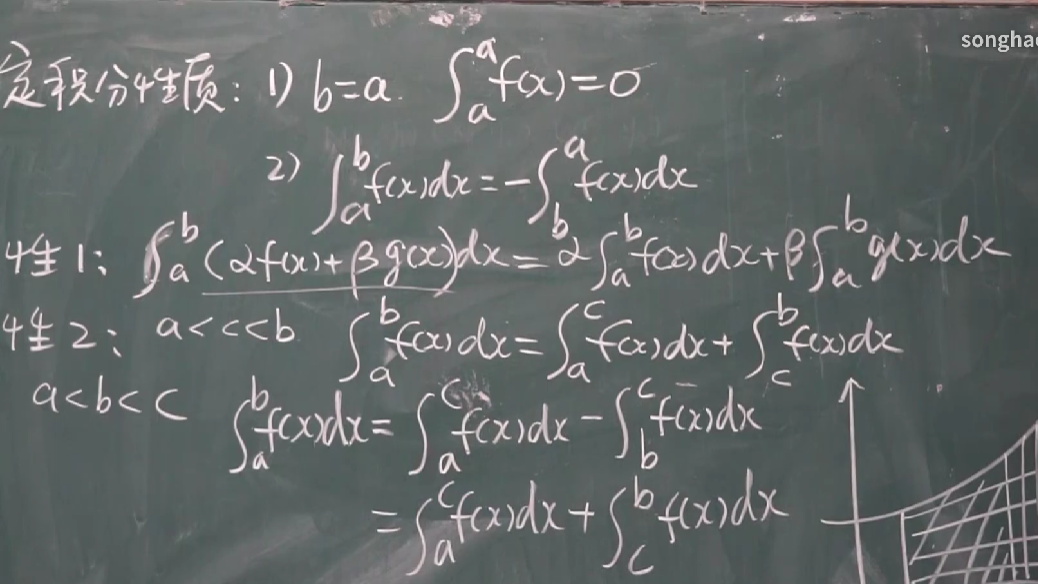 songhao
定积分性质: 1) b=a. ∫ₐᵃ f(x)=0
2) ∫ₐᵇ f(x)dx=-∫_bᵃ f(x)dx
性1: ∫ₐᵇ (αf(x)+βg(x))dx=α∫ₐᵇ f(x)dx+β∫ₐᵇ g(x)dx
性2: a<c<b ∫ₐᵇ f(x)dx=∫ₐᶜ f(x)dx+∫_cᵇ f(x)dx
a<b<c ∫ₐᵇ f(x)dx=∫ₐᶜ f(x)dx-∫_bᶜ f(x)dx
=∫ₐᶜ f(x)dx+∫_cᵇ f(x)dx